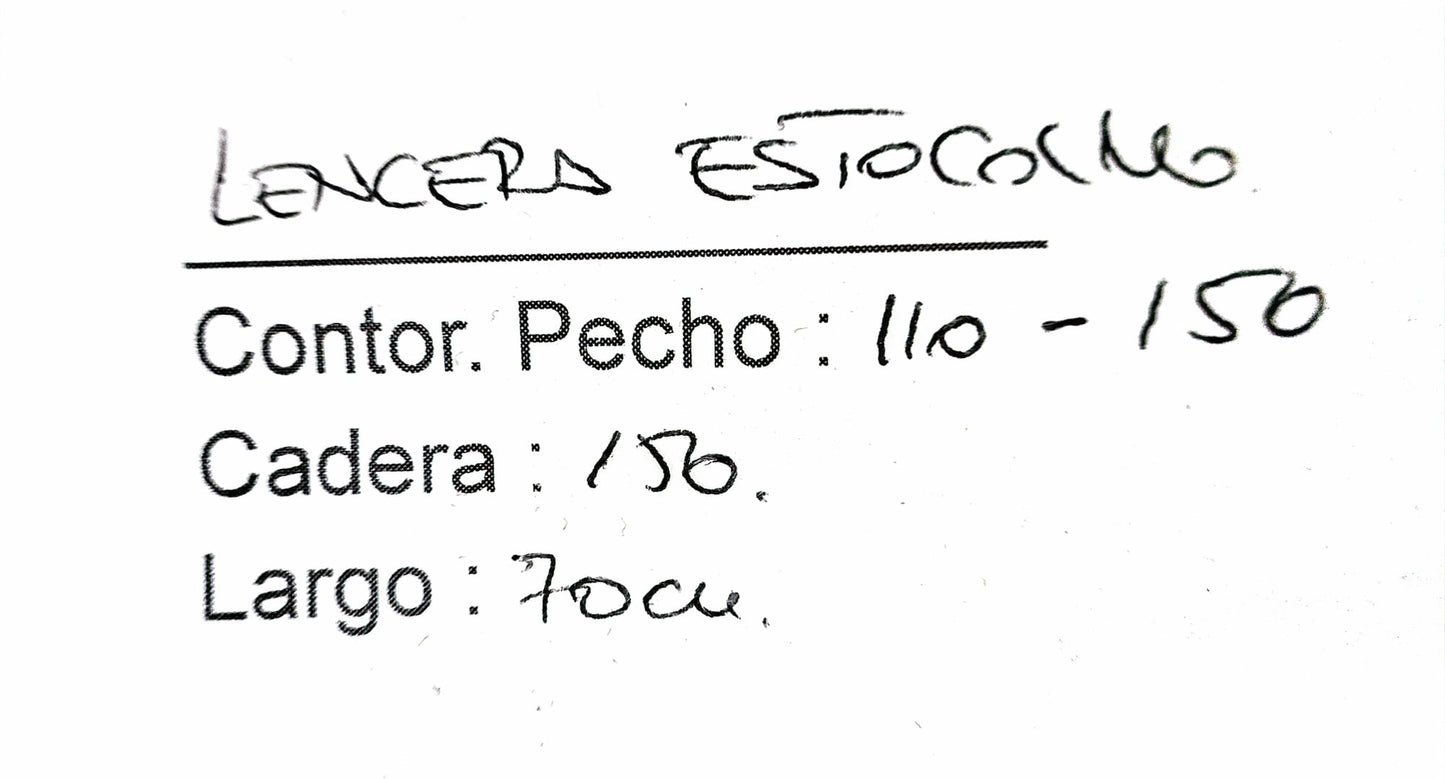 LENCERA ESTOCOLMO
Contor. Pecho : 110 - 150
Cadera : 150.
Largo : 70cm.